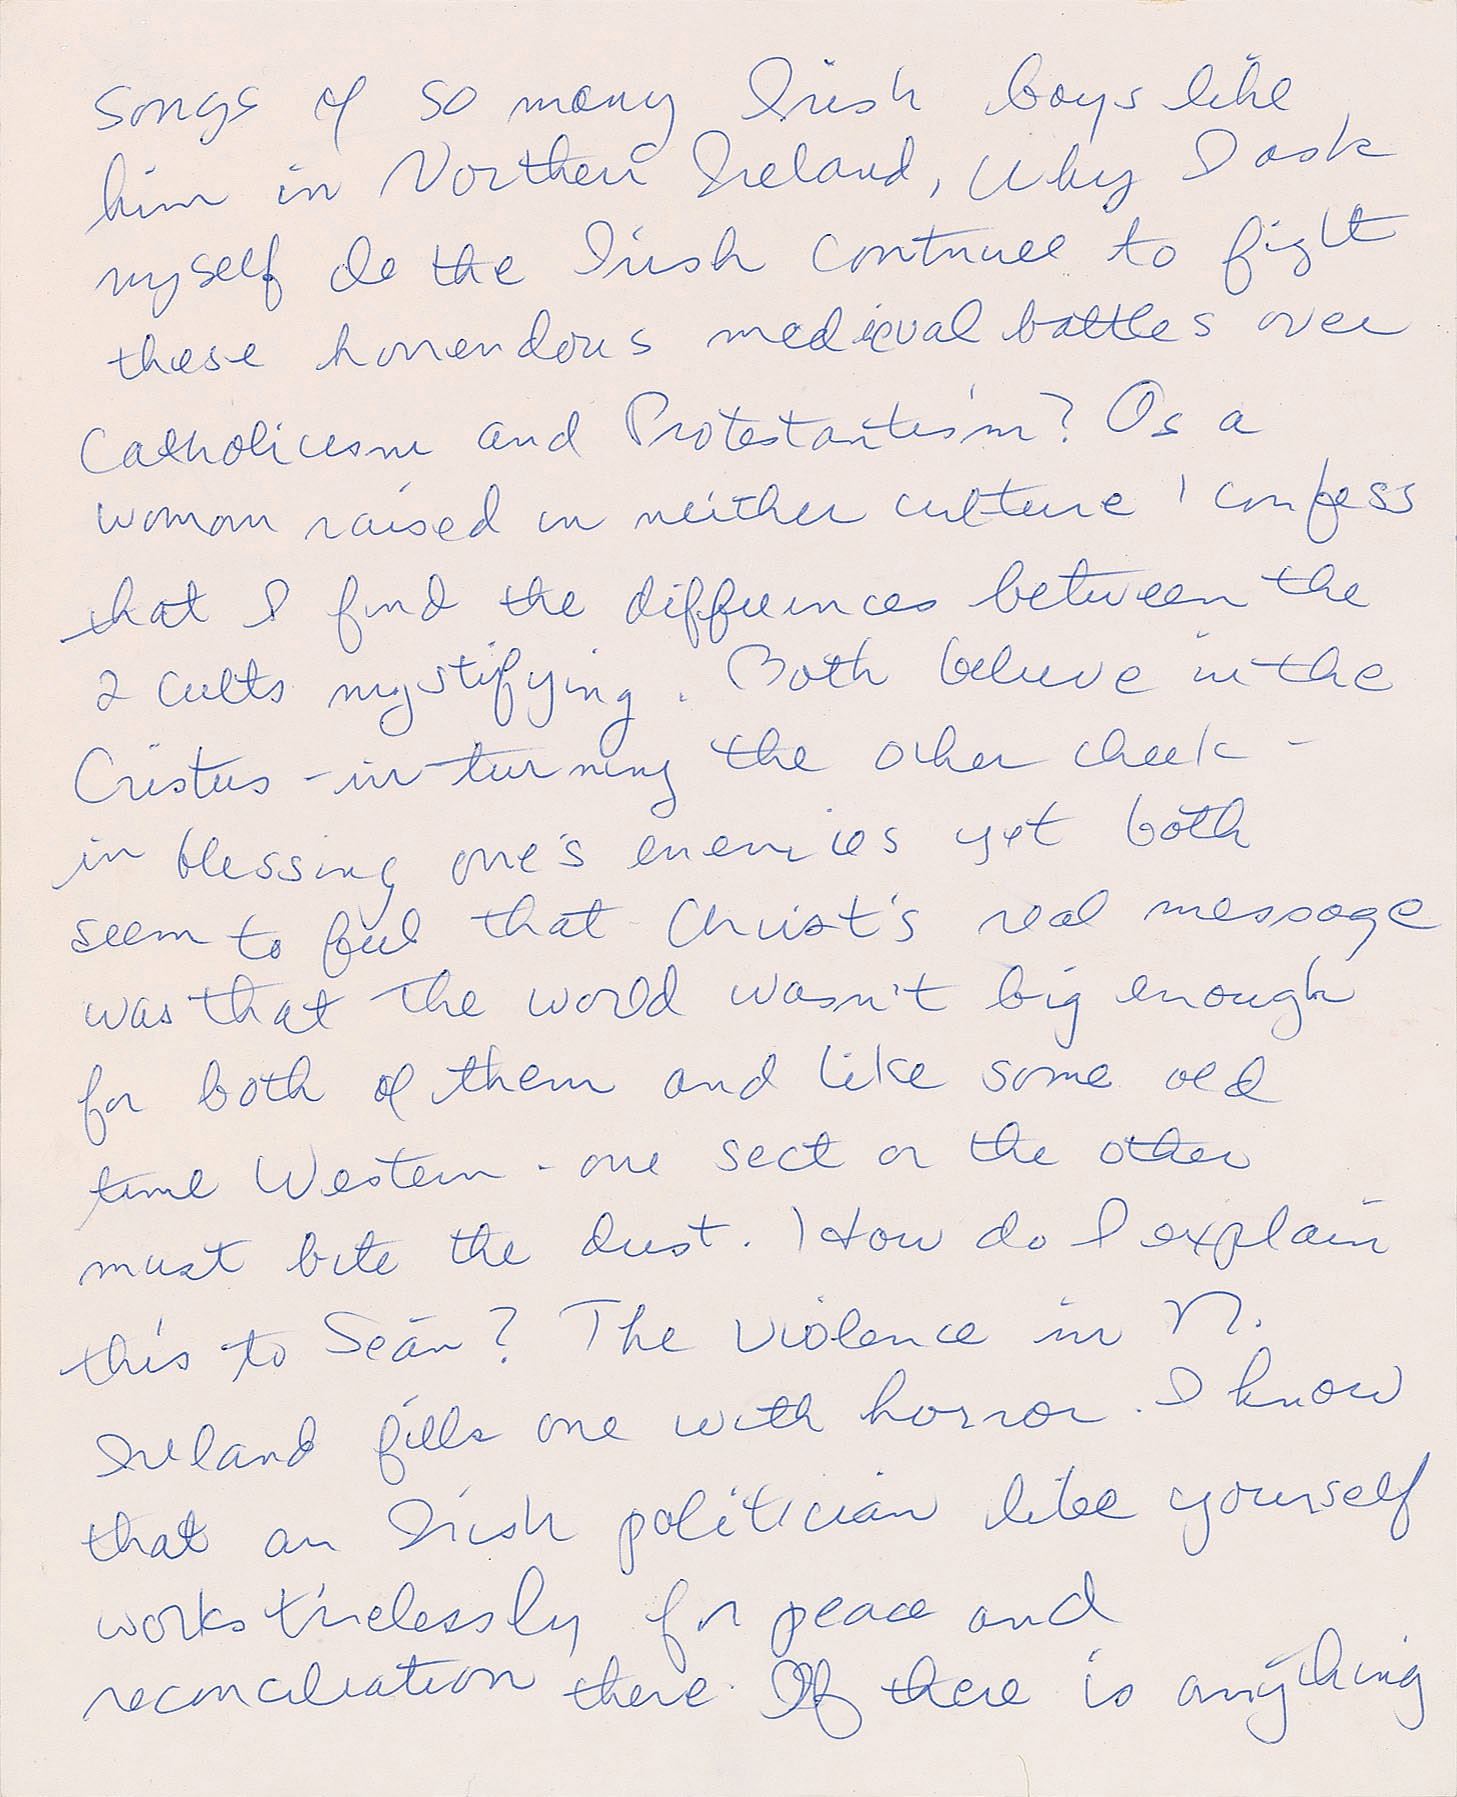 songs of so many Irish boys like
him in Northern Ireland, Why I ask
myself do the Irish continue to fight
these horrendous medieval battles over
Catholicism and Protestantism? As a
woman raised in neither culture I confess
that I find the differences between the
2 cults mystifying. Both believe in the
Cristus - in turning the other cheek -
in blessing one's enemies yet both
seem to feel that Christ's real message
was that the world wasn't big enough
for both of them and like some old
time Western - one sect or the other
must bite the dust. How do I explain
this to Seán? The violence in N.
Ireland fills one with horror. I know
that an Irish politician like yourself
works tirelessly for peace and
reconciliation there. If there is anything